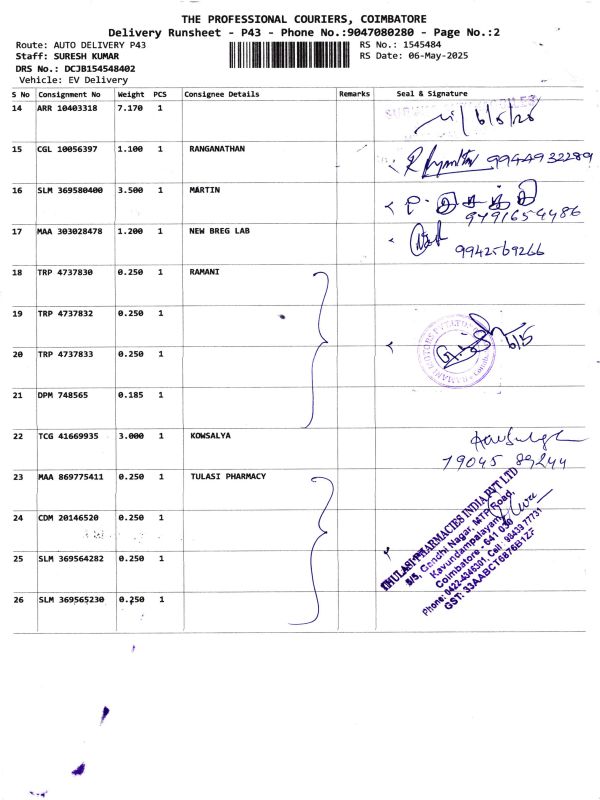 THE PROFESSIONAL COURIERS, COIMBATORE
Delivery Runsheet - P43 - Phone No.:9047080280 - Page No.:2
Route: AUTO DELIVERY P43
Staff: SURESH KUMAR
DRS No.: DCJB154548402
Vehicle: EV Delivery
RS No.: 1545484
RS Date: 06-May-2025
S No Consignment No Weight PCS Consignee Details Remarks Seal & Signature
14 ARR 10403318 7.170 1
15 CGL 10056397 1.100 1 RANGANATHAN 9944932289
16 SLM 369580400 3.500 1 MARTIN 9791654486
17 MAA 303028478 1.200 1 NEW BREG LAB 9942569266
18 TRP 4737830 0.250 1 RAMANI
19 TRP 4737832 0.250 1
20 TRP 4737833 0.250 1
21 DPM 748565 0.185 1
22 TCG 41669935 3.000 1 KOWSALYA
79045 89244
23 MAA 869775411 0.250 1 TULASI PHARMACY
24 CDM 20146520 0.250 1
25 SLM 369564282 0.250 1
26 SLM 369565230 0.250 1
THULASI PHARMACIES INDIA PVT LTD
5/5, Gandhi Nagar, MTP Road,
Kavundampalayam,
Coimbatore - 641 030
Phone: 0422-4346301, Cell: 98439 77731
GST: 33AABCT6876B1ZF